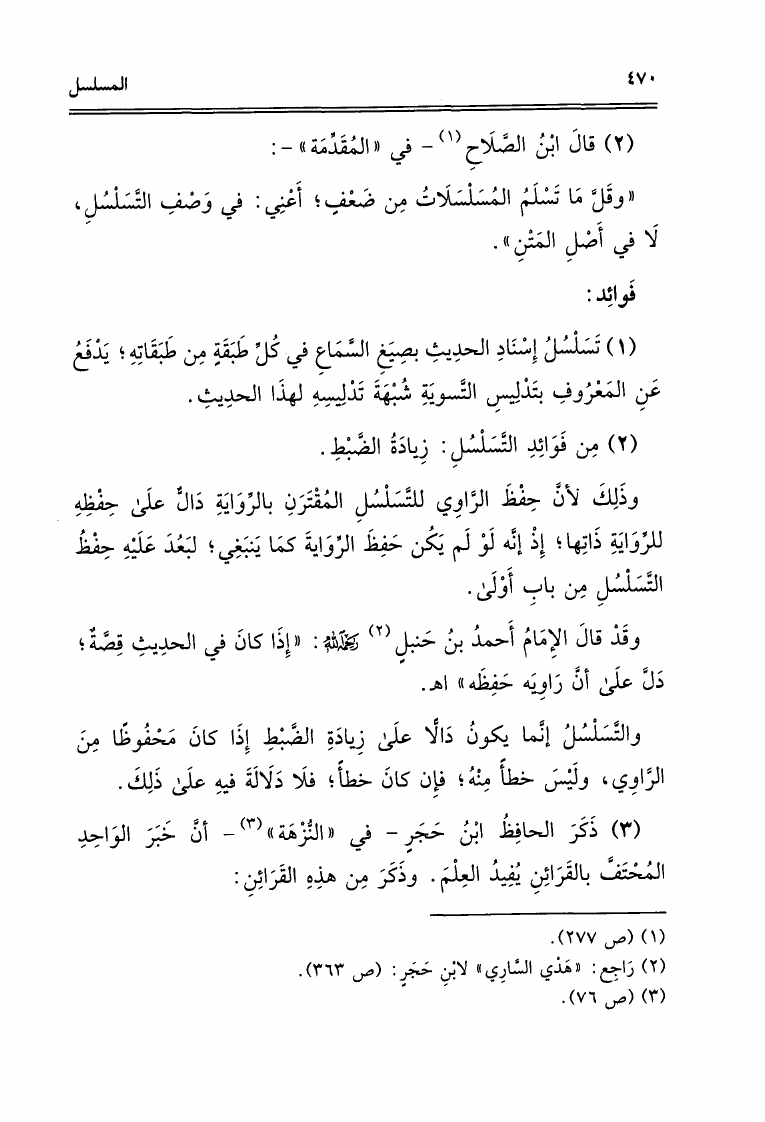 ٤٧٠
المسلسل
(٢) قالَ ابْنُ الصَّلَاحِ(١) - في «المُقَدِّمَة» -:
«وقَلَّ مَا تَسْلَمُ المُسَلْسَلَاتُ مِن ضَعْفٍ؛ أَعْنِي: في وَصْفِ التَّسَلْسُلِ،
لَا في أَصْلِ المَتْنِ».
فَوائِد:
(١) تَسَلْسُلُ إِسْنَادِ الحديثِ بصِيَغِ السَّمَاعِ في كُلِّ طَبَقَةٍ مِن طَبَقَاتِهِ؛ يَدْفَعُ
عَنِ المَعْرُوفِ بتَدْلِيسِ التَّسويَةِ شُبْهَةَ تَدْلِيسِهِ لهذَا الحديثِ.
(٢) مِن فَوَائِدِ التَّسَلْسُلِ: زِيادَةُ الضَّبْطِ.
وذَلِكَ لأنَّ حِفْظَ الرَّاوِي للتَّسَلْسُلِ المُقْتَرَنِ بالرِّوَايَةِ دَالٌّ علَىٰ حِفْظِهِ
للرِّوَايَةِ ذَاتِها؛ إِذْ إنَّه لَوْ لَم يَكُن حَفِظَ الرِّوايةَ كمَا يَنبَغِي؛ لبَعُدَ عَلَيْهِ حِفْظُ
التَّسَلْسُلِ مِن بابِ أَوْلَىٰ.
وقَدْ قالَ الإمَامُ أَحمدُ بنُ حَنبلٍ(٢) رَحِمَهُ ٱللَّهُ: «إِذَا كانَ في الحديثِ قِصَّةٌ؛
دَلَّ علَىٰ أنَّ رَاوِيَه حَفِظَه» اهـ.
والتَّسَلْسُلُ إنَّما يكونُ دَالًّا علَىٰ زِيادَةِ الضَّبْطِ إِذَا كانَ مَحْفُوظًا مِنَ
الرَّاوِي، ولَيْسَ خطأً مِنْهُ؛ فإِن كانَ خطأً؛ فلَا دَلَالَةَ فيهِ علَىٰ ذَلِكَ.
(٣) ذَكَرَ الحافِظُ ابْنُ حَجَرٍ - في «النُّزْهَة»(٣) - أنَّ خَبَرَ الوَاحِدِ
المُحْتَفَّ بالقَرَائِنِ يُفِيدُ العِلْمَ. وذَكَرَ مِن هذِهِ القَرَائِنِ:
(١) (ص ٢٧٧).
(٢) رَاجِع: «هَدْي السَّارِي» لابْنِ حَجَرٍ: (ص ٣٦٣).
(٣) (ص ٧٦).